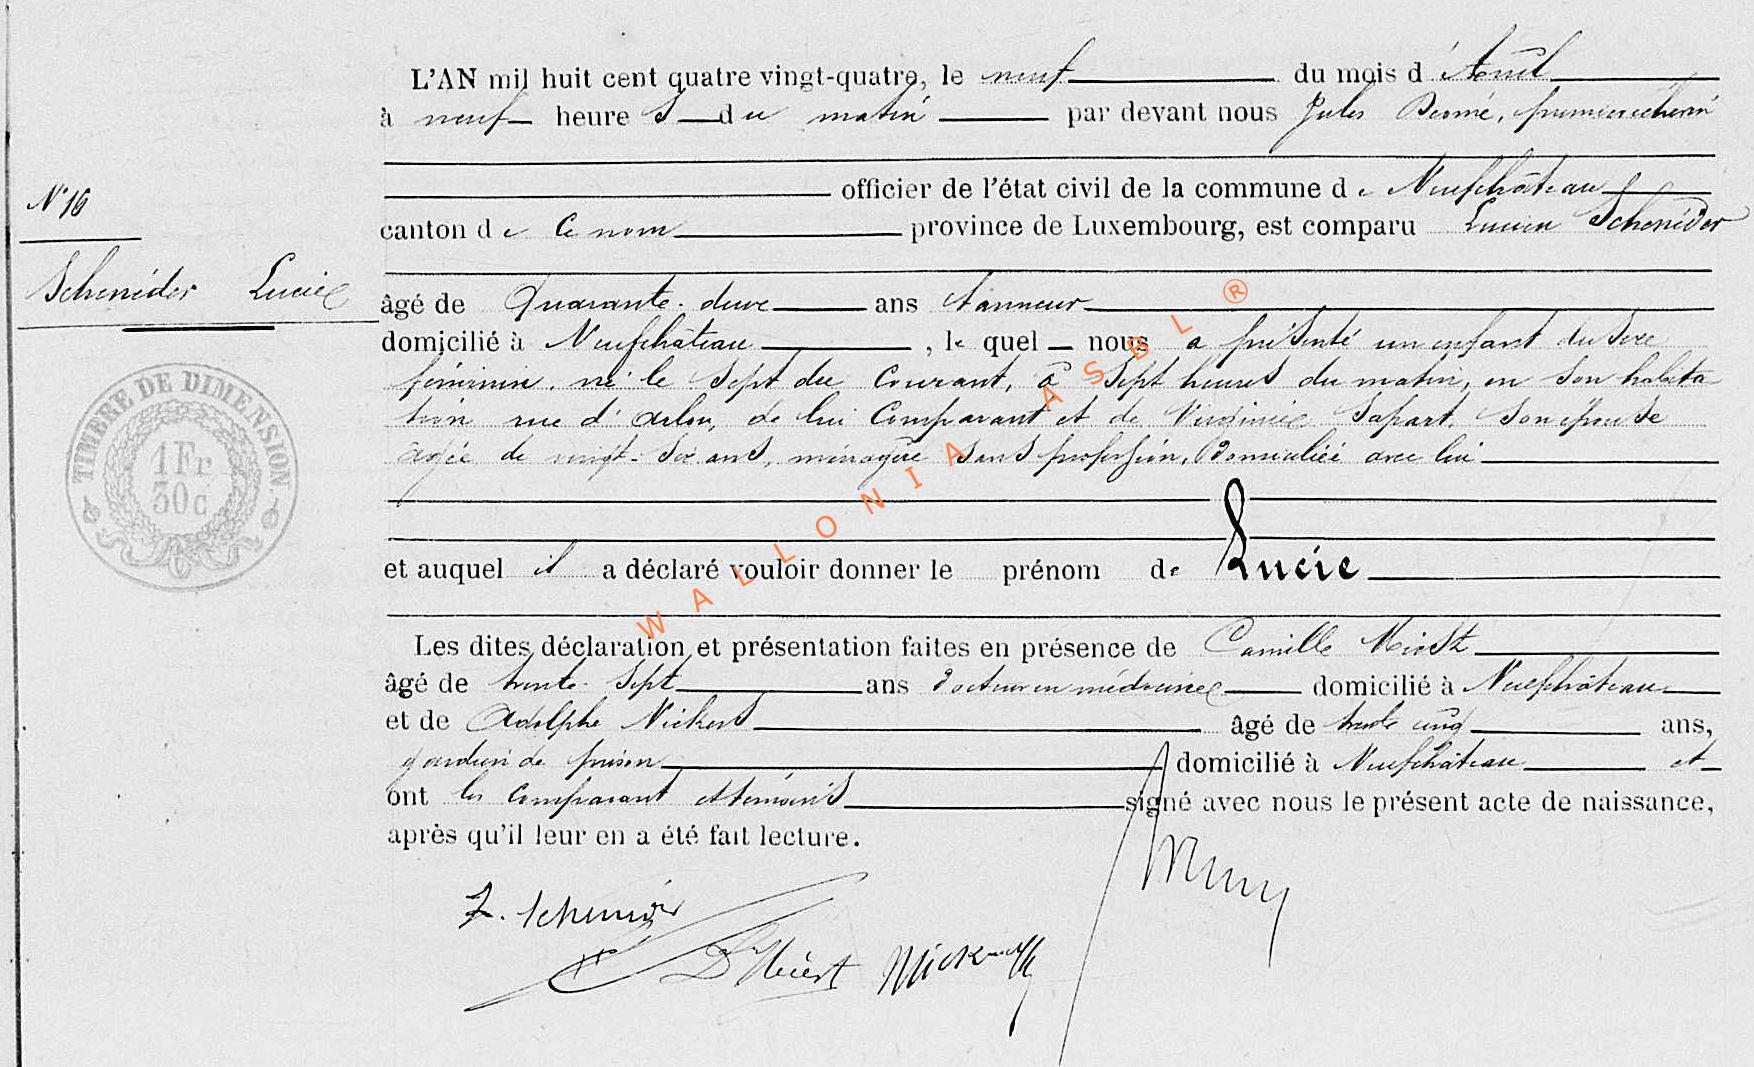 L'AN mil huit cent quatre vingt-quatre, le neuf du mois d'Avril
à neuf heures du matin par devant nous Jules premier échevin
officier de l'état civil de la commune de Neufchâteau
N° 16
canton de Ce nom province de Luxembourg, est comparu Lucien Schenéder
Schenéder Lucie
âgé de Quarante-deux ans tanneur
domicilié à Neufchâteau, lequel nous a présenté un enfant du sexe
féminin, né le sept du courant, à sept heures du matin, en son habita
tion rue d'Arlon, de lui Comparant et de Virginie Sapart, son épouse
âgée de vingt-six ans, ménagère sans profession, Domiciliée avec lui
TIMBRE DE DIMENSION
1 Fr
30 c
et auquel il a déclaré vouloir donner le prénom de Lucie
Les dites déclaration et présentation faites en présence de Camille
âgé de trente-sept ans docteur en médecine domicilié à Neufchâteau
et de Adolphe Nickers âgé de trente cinq ans,
gardien de prison domicilié à Neufchâteau et
ont les comparant et témoins signé avec nous le présent acte de naissance,
après qu'il leur en a été fait lecture.
WALLONIA ASBL ®